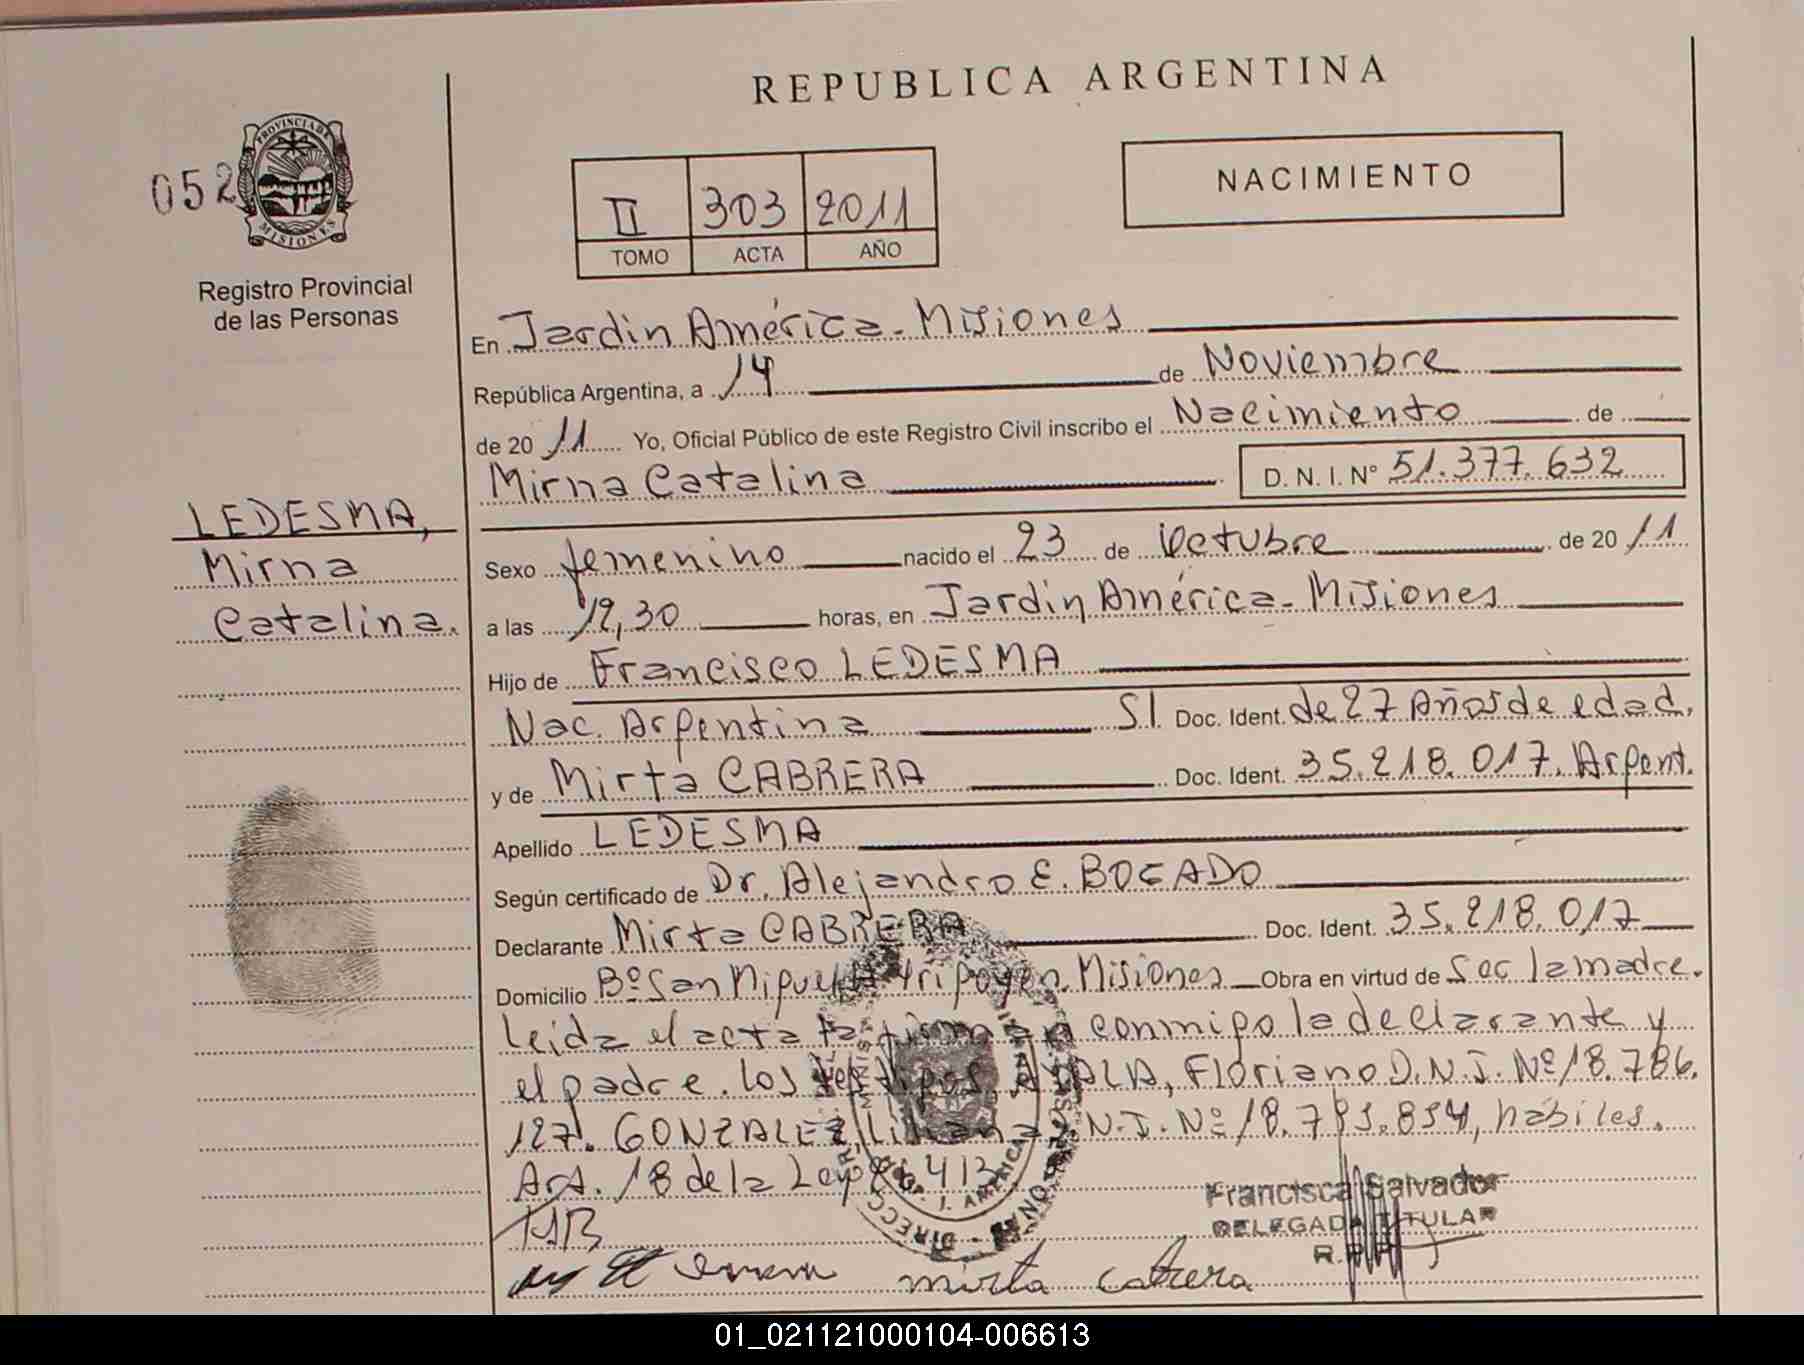 REPUBLICA ARGENTINA
052
PROVINCIA DE
MISIONES
Registro Provincial
de las Personas
II 303 2011
TOMO ACTA AÑO
NACIMIENTO
En Jardin América - Misiones
República Argentina, a 14 de Noviembre
de 20 11 Yo, Oficial Público de este Registro Civil inscribo el Nacimiento de
Mirna Catalina D. N. I. N° 51.377.632
LEDESMA,
Mirna
Catalina.
Sexo femenino nacido el 23 de Octubre de 20 11
a las 19,30 horas, en Jardin América - Misiones
Hijo de Francisco LEDESMA
Nac. Argentina S/. Doc. Ident. de 27 Años de edad.
y de Mirta CABRERA Doc. Ident. 35.218.017. Argent.
Apellido LEDESMA
Según certificado de Dr. Alejandro E. BOGADO
Declarante Mirta CABRERA Doc. Ident. 35.218.017
Domicilio Bº San Miguel H. Yrigoyen. Misiones Obra en virtud de Ser la madre.
Leida el acta la firman conmigo la declarante y
el padre. los testigos AYALA, Floriano D.N.I. Nº 18.786.
127. GONZALEZ, Liliana D.N.I. Nº 18.793.854, hábiles.
Art. 18 de la Ley 26.413
Francisca Salvador
DELEGADA TITULAR
R.P.P.
mirta cabrera
01_021121000104-006613